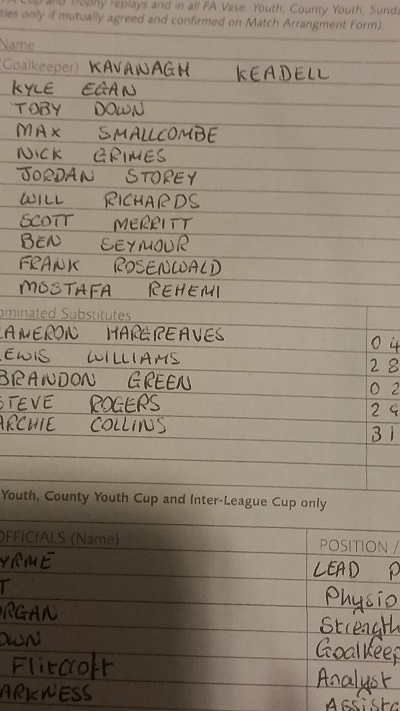 Cup and Trophy replays and in all FA Vase, Youth, County Youth, Sunda
ties only if mutually agreed and confirmed on Match Arrangment Form).
Name
(Goalkeeper) KAVANAGH KEADELL
KYLE EGAN
TOBY DOWN
MAX SMALLCOMBE
NICK GRIMES
JORDAN STOREY
WILL RICHARDS
SCOTT MERRITT
BEN SEYMOUR
FRANK ROSENWALD
MOSTAFA REHEMI
ominated Substitutes
AMERON HARGREAVES 0 4
EWIS WILLIAMS 2 8
BRANDON GREEN 0 2
STEVE ROGERS 2 9
ARCHIE COLLINS 3 1
Youth, County Youth Cup and Inter-League Cup only
OFFICIALS (Name) POSITION /
YRME LEAD P
T Physio
ORGAN Strength
OWN Goalkeep
Flitcroft Analyst
ARKNESS Assista